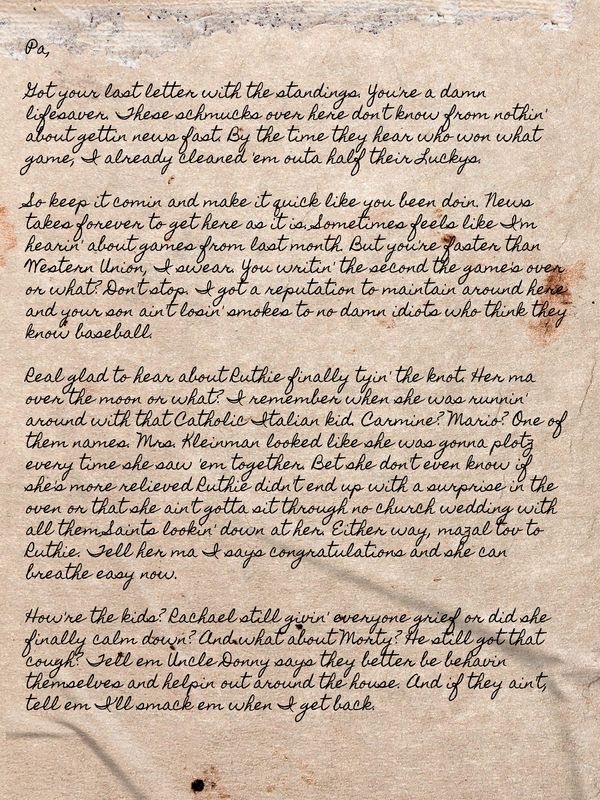 Pa,
Got your last letter with the standings. You're a damn
lifesaver. These schmucks over here don't know from nothin'
about gettin news fast. By the time they hear who won what
game, I already cleaned 'em outa half their Luckys.
So keep it comin and make it quick like you been doin. News
takes forever to get here as it is. Sometimes feels like I'm
hearin' about games from last month. But you're faster than
Western Union, I swear. You writin' the second the game's over
or what? Don't stop. I got a reputation to maintain around here
and your son ain't losin' smokes to no damn idiots who think they
know baseball.
Real glad to hear about Ruthie finally tyin' the knot. Her ma
over the moon or what? I remember when she was runnin'
around with that Catholic Italian kid. Carmine? Mario? One of
them names. Mrs. Kleinman looked like she was gonna plotz
every time she saw 'em together. Bet she don't even know if
she's more relieved Ruthie didn't end up with a surprise in the
oven or that she ain't gotta sit through no church wedding with
all them Saints lookin' down at her. Either way, mazal tov to
Ruthie. Tell her ma I says congratulations and she can
breathe easy now.
How're the kids? Rachael still givin' everyone grief or did she
finally calm down? And what about Morty? He still got that
cough? Tell em Uncle Donny says they better be behavin
themselves and helpin out around the house. And if they ain't,
tell em I'll smack em when I get back.